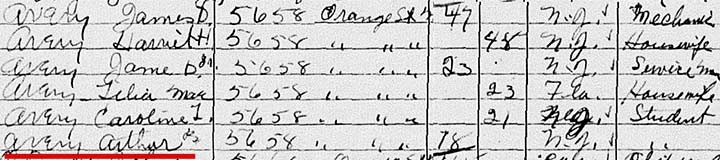 Avery James D. 5658 Orange St 47 N.J. Mechanic
Avery Harriet H 5658 " " 48 N.J. Housewife
Avery Jame D. Jr. 5658 " " 23 N.J. Service
Avery Lilia Mae 5658 " " 23 Fla. Housewife
Avery Caroline F. 5658 " " 21 N.J. Student
Avery Arthur 5658 " " 18 N.J. "